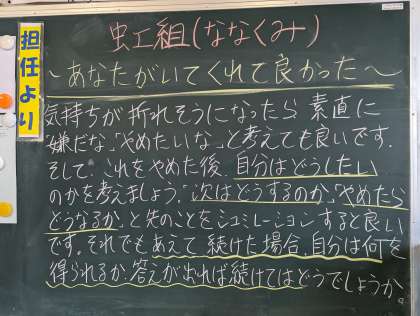 担任より
虹組(ななくみ)
～あなたがいてくれて良かった～
気持ちが折れそうになったら 素直に
「嫌だな」「やめたいな」と考えても良いです。
そして、これをやめた後、自分はどうしたい
のかを考えましょう。「次はどうするのか」「やめたら
どうなるか」と先のことをシュミレーションすると良い
です。それでもあえて続けた場合、自分は何を
得られるか、答えが出れば続けてはどうでしょうか。